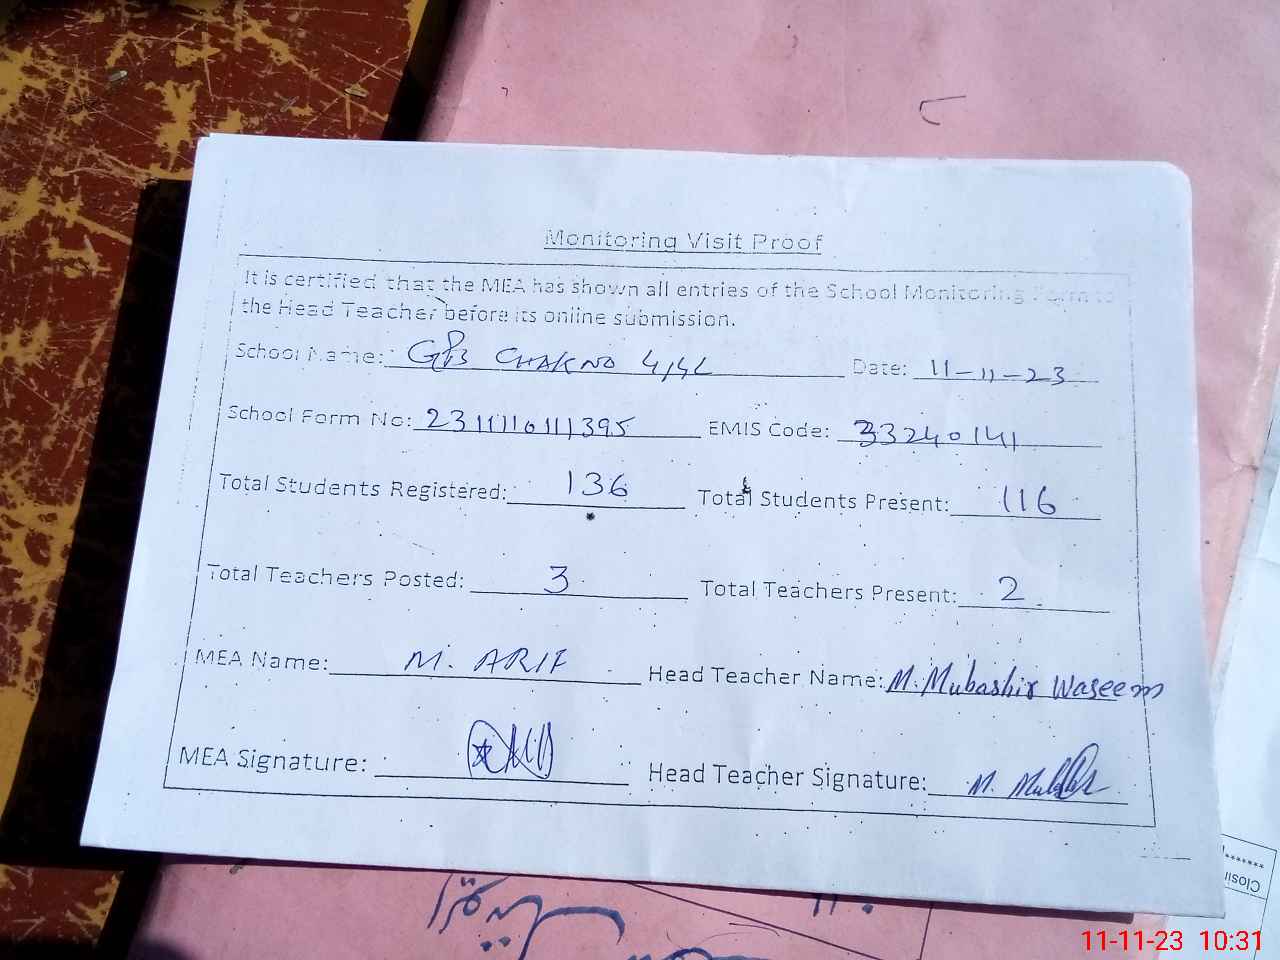 Monitoring Visit Proof
It is certified that the MEA has shown all entries of the School Monitoring Form to
the Head Teacher before its online submission.
School Name: GPS CHAK NO 4/4L Date: 11-11-23
School Form No: 23111110111395 EMIS Code: 33240141
Total Students Registered: 136 Total Students Present: 116
Total Teachers Posted: 3 Total Teachers Present: 2
MEA Name: M. ARIF Head Teacher Name: M. Mubashir Waseem
MEA Signature: Head Teacher Signature: M.
11-11-23 10:31